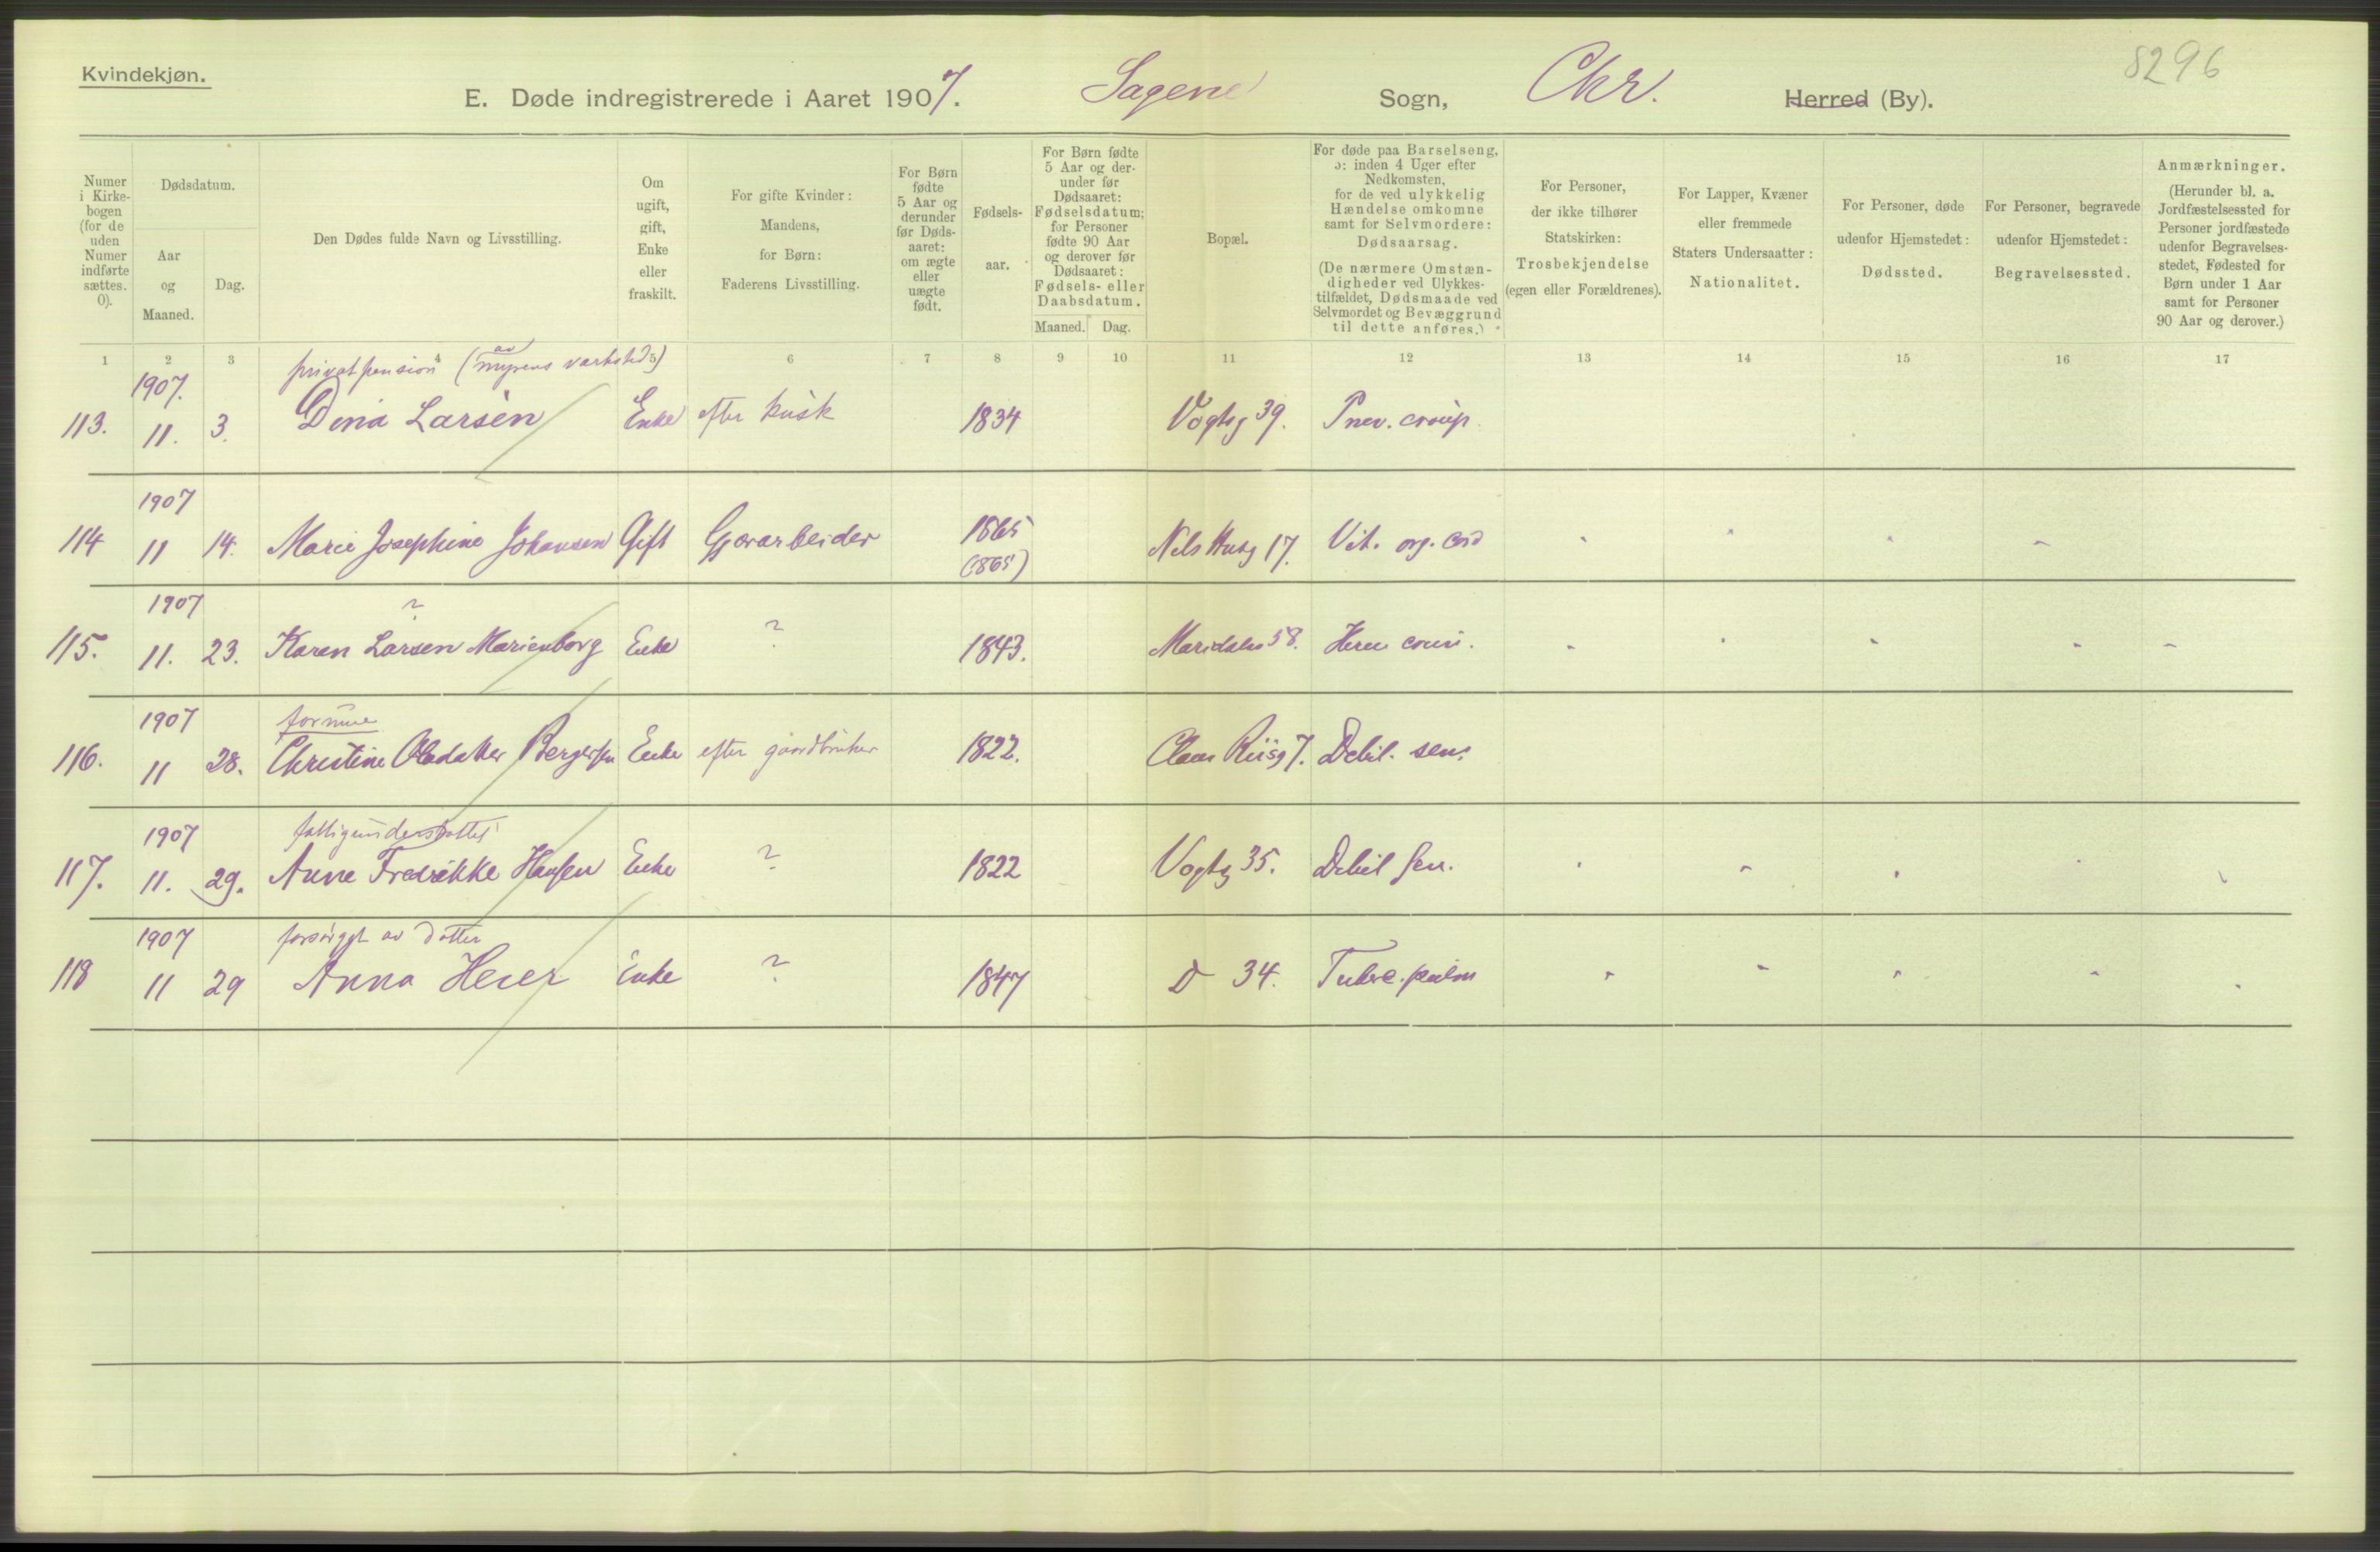 Kvindekjøn.
8296
E. Døde indregistrerede i Aaret 1907. Sagene Sogn, Chr. Herred (By).
Numer i Kirkebogen (for de uden Numer indførte sættes. 0).
Dødsdatum.
Aar og Maaned.
Dag.
Den Dødes fulde Navn og Livsstilling.
Om ugift, gift, Enke eller fraskilt.
For gifte Kvinder: Mandens, for Børn: Faderens Livsstilling.
For Børn fødte 5 Aar og derunder før Dødsaaret: om ægte eller uægte født.
Fødselsaar.
For Børn fødte 5 Aar og derunder før Dødsaaret: Fødselsdatum; for Personer fødte 90 Aar og derover før Dødsaaret: Fødsels- eller Daabsdatum.
Maaned. Dag.
Bopæl.
For døde paa Barselseng, ɔ: inden 4 Uger efter Nedkomsten, for de ved ulykkelig Hændelse omkomne samt for Selvmordere: Dødsaarsag.
(De nærmere Omstændigheder ved Ulykkestilfældet, Dødsmaade ved Selvmordet og Bevæggrund til dette anføres.)
For Personer, der ikke tilhører Statskirken: Trosbekjendelse (egen eller Forældrenes).
For Lapper, Kvæner eller fremmede Staters Undersaatter: Nationalitet.
For Personer, døde udenfor Hjemstedet: Dødssted.
For Personer, begravede udenfor Hjemstedet: Begravelsessted.
Anmærkninger.
(Herunder bl. a. Jordfæstelsessted for Personer jordfæstede udenfor Begravelsesstedet, Fødested for Børn under 1 Aar samt for Personer 90 Aar og derover.)
1 2 3 4 5 6 7 8 9 10 11 12 13 14 15 16 17
privatpension (av myrens verksted)
1907.
113. 11. 3. Dina Larsen Enke efter kusk 1834 Vogtsg 39. Pnev. croup.
1907
114 11 14. Marie Josephine Johansen Gift Garvarbeider 1865 Nels Husg 17. Vit. org. cord
(1865)
1907 ?
115. 11. 23. Karen Larsen Marienborg Enke ? 1843. Maridalsv 58.
1907 formue
116. 11 28. Christine Bergersen Enke efter gaardbruker 1822. Claus Riisg 7. Debil. sen.
1907 fattigunderstøttet
117. 11. 29. Anne Fredrikke Hansen Enke ? 1822 Vogtsg 35. Debil sen.
1907 forsørget av datter
118 11 29 Anna Heier Enke ? 1847 D 34. Tuberc. pulm